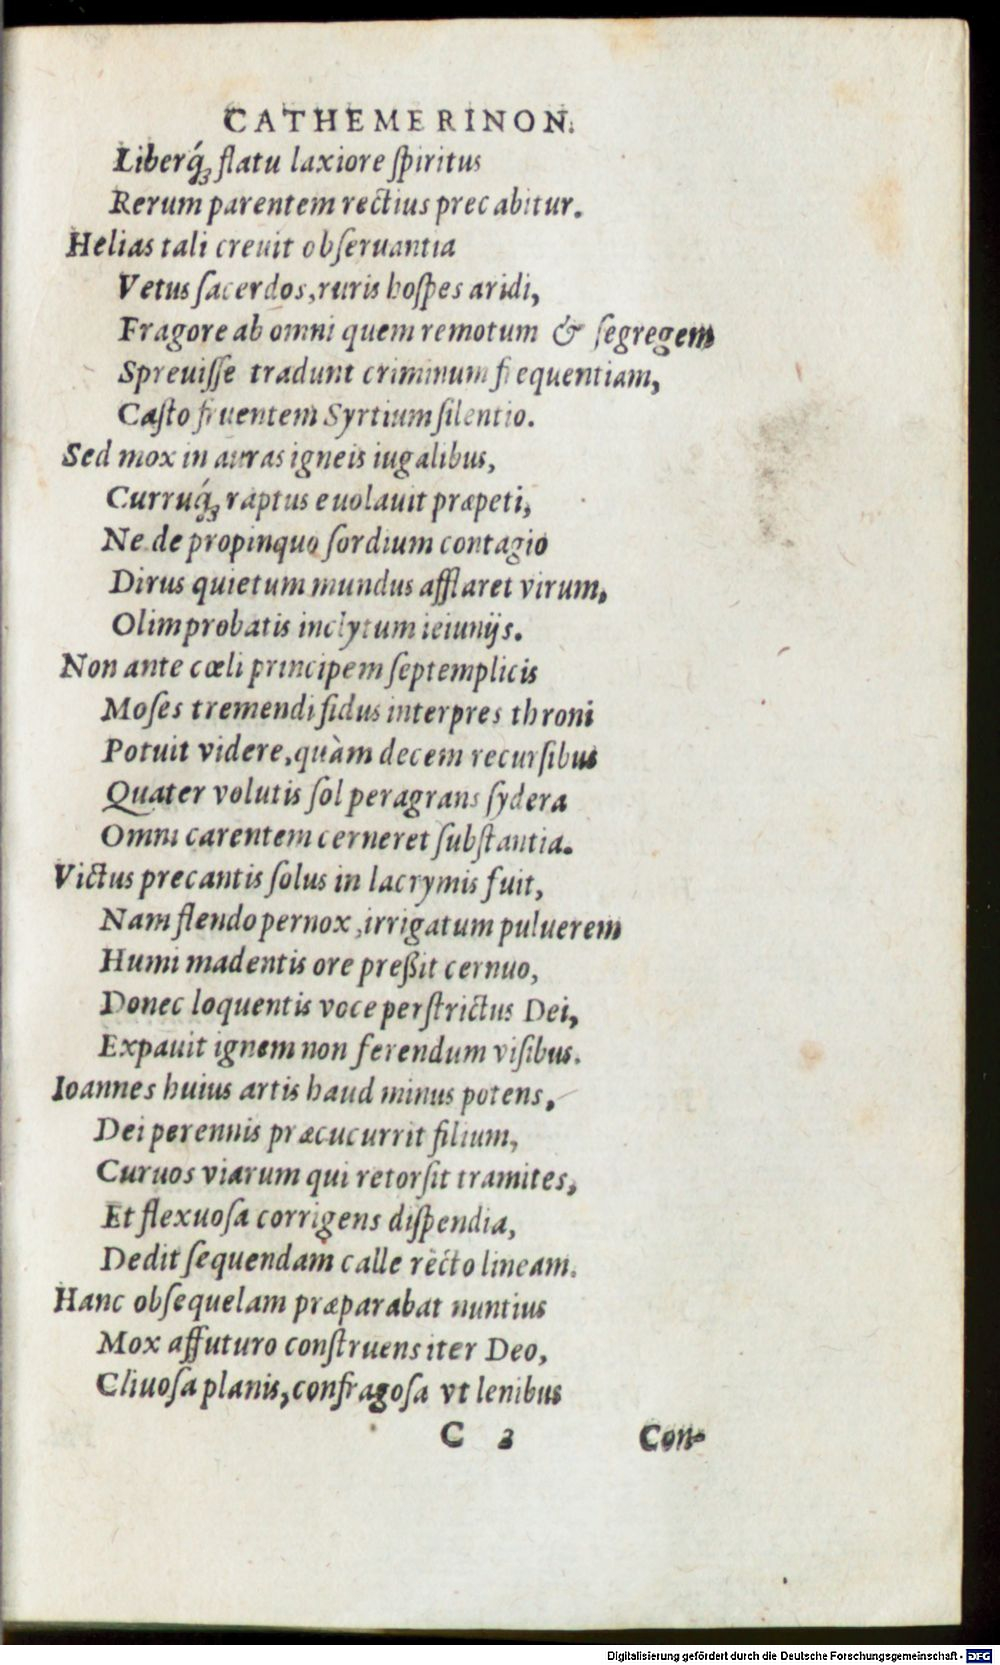 CATHEMERINON.
Liberq́ꝫ flatu laxiore ſpiritus
Rerum parentem rectius precabitur.
Helias tali creuit obſeruantia
Vetus ſacerdos, ruris hoſpes aridi,
Fragore ab omni quem remotum & ſegregem
Spreuiſſe tradunt criminum frequentiam,
Caſto fruentem Syrtium ſilentio.
Sed mox in auras igneis iugalibus,
Curruq́ꝫ raptus euolauit præpeti,
Ne de propinquo ſordium contagio
Dirus quietum mundus afflaret virum,
Olim probatis inclytum ieiunijs.
Non ante cœli principem ſeptemplicis
Moſes tremendi fidus interpres throni
Potuit videre, quàm decem recurſibus
Quater volutis ſol peragrans ſydera
Omni carentem cerneret ſubſtantia.
Victus precantis ſolus in lacrymis fuit,
Nam flendo pernox, irrigatum puluerem
Humi madentis ore preßit cernuo,
Donec loquentis voce perſtrictus Dei,
Expauit ignem non ferendum viſibus.
Ioannes huius artis haud minus potens,
Dei perennis præcucurrit filium,
Curuos viarum qui retorſit tramites,
Et flexuoſa corrigens diſpendia,
Dedit ſequendam calle recto lineam.
Hanc obſequelam præparabat nuntius
Mox affuturo conſtruens iter Deo,
Cliuoſa planis, confragoſa vt lenibus
C 3 Con-
Digitalisierung gefördert durch die Deutsche Forschungsgemeinschaft - DFG